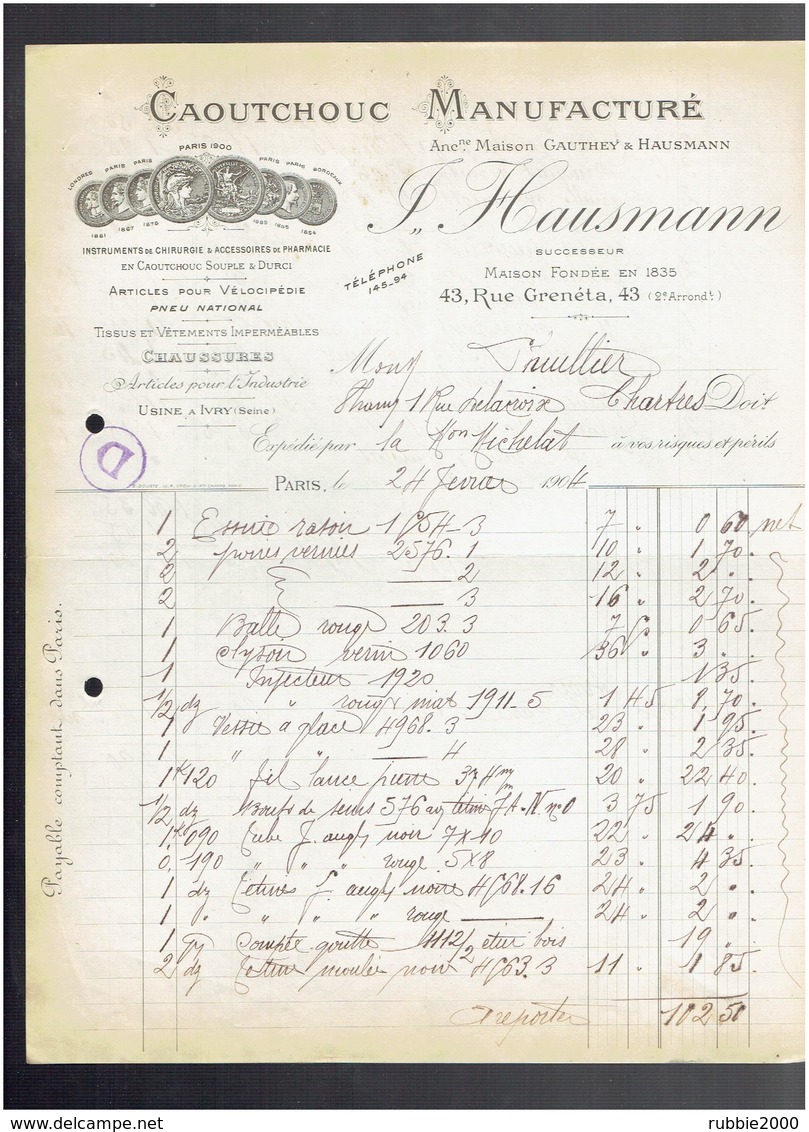 CAOUTCHOUC MANUFACTURÉ
Anc.ne Maison GAUTHEY & HAUSMANN
PARIS 1900
LONDRES PARIS PARIS PARIS PARIS BORDEAUX
1867 1878 1855 1854
J. Hausmann
SUCCESSEUR
MAISON FONDÉE EN 1835
43, RUE GRENÉTA, 43 (2e Arrondt)
TÉLÉPHONE
145-94
INSTRUMENTS DE CHIRURGIE & ACCESSOIRES DE PHARMACIE
EN CAOUTCHOUC SOUPLE & DURCI
ARTICLES POUR VÉLOCIPÉDIE
PNEU NATIONAL
TISSUS ET VÊTEMENTS IMPERMÉABLES
CHAUSSURES
Articles pour l'Industrie
USINE A IVRY (Seine)
1 Rue Delacroix Chartres Doit
Expédié par la Mon Michelat à vos risques et périls
D
PARIS, le 24 fevrier 1904
Payable comptant dans Paris.
1 Essuie rasoir 3 7 " 0 60 net
2 poires vernies 2576. 1 10 " 1 70.
2 — 2 12 " 2 ".
2 — 3 16 " 2 70.
1 Balle rouge 203.3 0 65.
1 vernis 1060 36 3 ".
1 Injecteur 1920 1 35.
1/2 dz " rouge mat 1911-5 1 45 70.
1 Vessie à glace 4968.3 23 " 1 95.
1 " " — 4 28 " 2 35.
1k 120 fil lance pierre 20 " 22 40.
1/2 dz Bouts de seins 576 3 75 1 90.
1k 090 Tube f. angl noir 7x10 22 " 24 ".
0, 190 " " " rouge 5x8 23 " 4 35.
1 dz Tétines f. angl noires 4968.16 24 " 2 ".
1 " " " " rouge — 24 " 2 ".
1 Compte goutte bois 19 ".
2 dz moulée noir 4963.3 11 " 1 85.
A reporter 102 50
rubbie2000